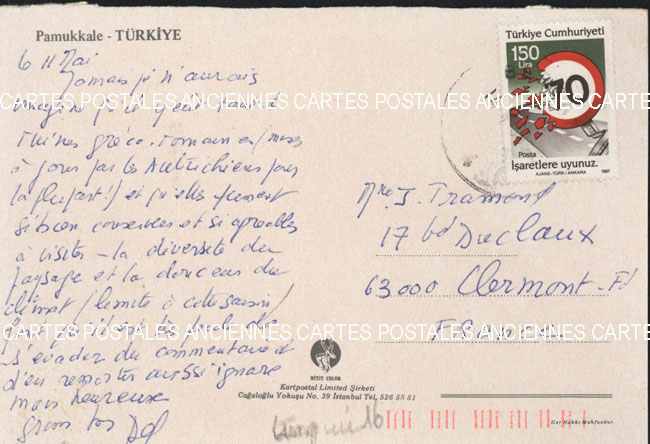 Pamukkale - TÜRKİYE
le 11 Mai
Jamais je n'aurais
imaginé qu'il y eût tant de
ruines gréco-romaines (mises
à jour par les Autrichiens pour
la plupart!) et qu'elles fussent
si bien conservées et si agréables
à visiter - la diversité du
paysage et la douceur du
climat (limité à cette saison)
s'évader du commentaire et
d'en ressortir aussi ignare
mais heureuse
Gros bs
CARTES POSTALES ANCIENNES CARTES POSTALES ANCIENNES CARTES POSTALES ANCIENNES
CARTES POSTALES ANCIENNES CARTES POSTALES ANCIENNES CARTES POSTALES ANCIENNES
Türkiye Cumhuriyeti
150
Lira
70
Posta
İşaretlere uyunuz.
AJANS-TÜRK / ANKARA 1987
Mme J. Tramond
17 bd Duclaux
63000 Clermont-Fd
FRANCE
KEYIF COLOR
Kartpostal Limited Şirketi
Cağaloğlu Yokuşu No. 39 İstanbul Tel. 526 55 51
Her Hakkı Mahfuzdur.